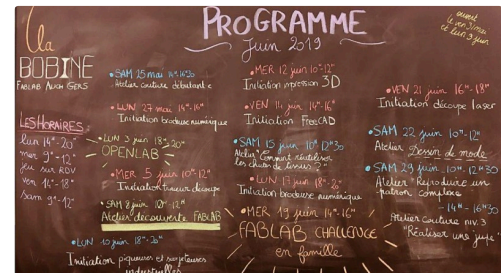 PROGRAMME
Juin 2019
ouvert
le ven 31 mai
et lun 3 juin
La
BOBINE
FABLAB AUCH GERS
LES HORAIRES :
lun 14h-20h
mer 9h-12h
jeu sur RDV
ven 14h-18h
sam 9h-12h
• SAM 25 mai 14h-16h30
Atelier couture débutant.e
• LUN 27 mai 14h-16h
Initiation brodeuse numérique
• LUN 3 juin 18h-20h
OPENLAB
• MER 5 juin 10h-12h
Initiation traceur découpe
• SAM 8 juin 10h-12h
Atelier découverte FABLAB
• LUN 10 juin 18h-20h
Initiation piqueuses et surjeteuses
industrielles
• MER 12 juin 10h-12h
Initiation impression 3D
• VEN 14 juin 14h-16h
Initiation FreeCAD
• SAM 15 juin 10h-12h30
Atelier "Comment réutiliser
les chutes de tissus ?"
• LUN 17 juin 18h-20h
Initiation brodeuse numérique
• MER 19 juin 14h-16h
FABLAB CHALLENGE
en famille
• VEN 21 juin 16h-18h
Initiation découpe laser
• SAM 22 juin 10h-12h
Atelier Dessin de mode
• SAM 29 juin 10h-12h30
Atelier "Reproduire un
patron complexe"
- 14h-16h30
Atelier Couture niv. 3
"Réaliser une jupe"